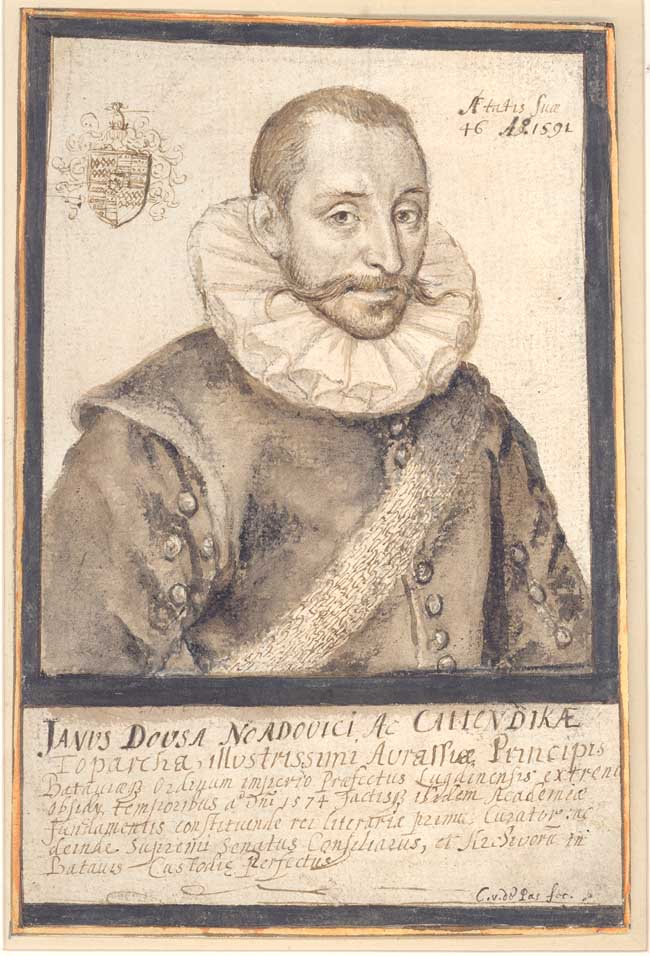 Ætatis suæ
46 Aº. 1591
JANVS DOVSA NORDOVICI AC CATTENDIKÆ
Toparcha, illustrissimi Avrassiæ Principis
Bataviæq3 Ordinum imperio Præfectus Lugdinensis extremi
obsidij temporibus aº Dni 1574 factisq3 ibidem Academiæ
fundamentis constituendæ rei literariæ primus Curator: ac
deinde Supremi Senatus Consiliarus, et Archivorū in
Batavis Custodiæ Perfectus
C. v. de Pas fec.